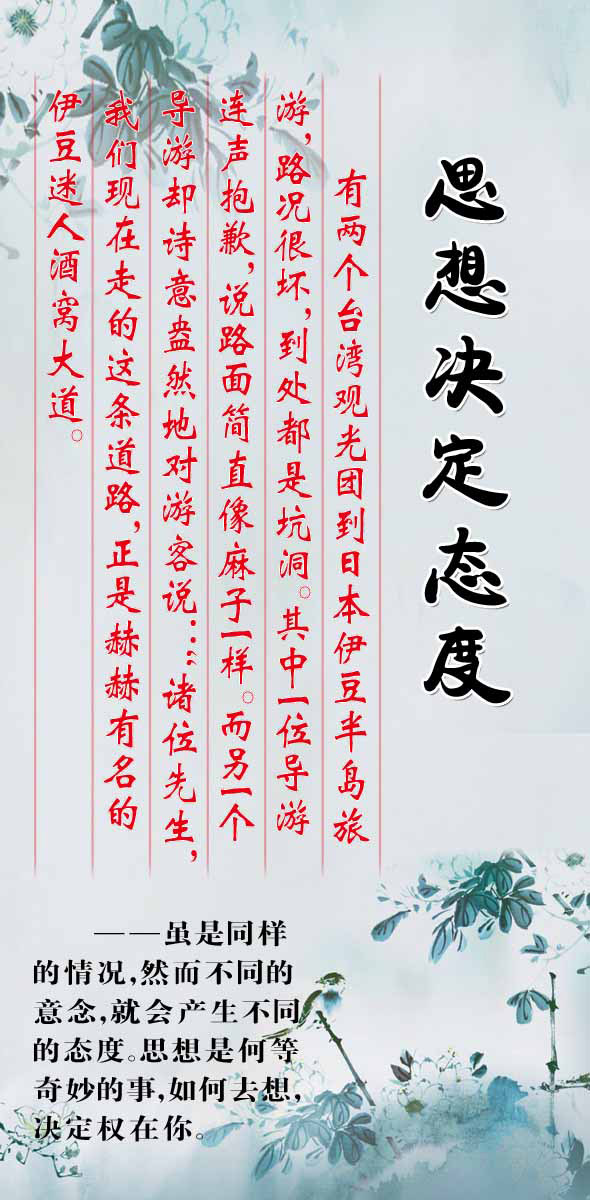 思想决定态度
有两个台湾观光团到日本伊豆半岛旅
游，路况很坏，到处都是坑洞。其中一位导游
连声抱歉，说路面简直像麻子一样。而另一个
导游却诗意盎然地对游客说：“诸位先生，
我们现在走的这条道路，正是赫赫有名的
伊豆迷人酒窝大道。
——虽是同样
的情况,然而不同的
意念,就会产生不同
的态度。思想是何等
奇妙的事,如何去想,
决定权在你。